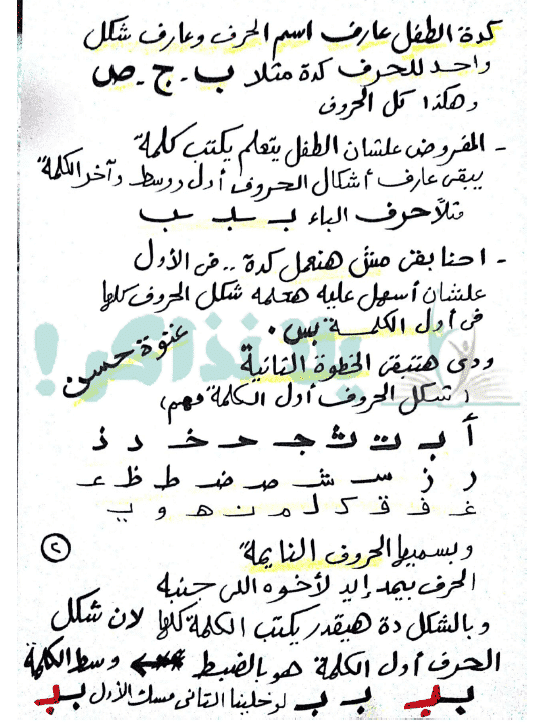 كدة الطفل عارف اسم الحرف وعارف شكل
واحد للحرف كدة مثلا ب - ج - ص
وهكذا كل الحروف
- المفروض علشان الطفل يتعلم يكتب كلمة
يبقى عارف أشكال الحروف أول ووسط وآخر الكلمة
مثلاً حرف الباء بـ ـبـ ـب
- احنا بقى مش هنعمل كدة .. فى الأول
علشان أسهل عليه هعلمه شكل الحروف كلها
فى أول الكلمــة بس .
عنوة حسن
يلا نذاكر!
ودى هتبقى الخطوة التانية
(شكل الحروف أول الكلمة مهم)
أ بـ تـ ثـ جـ حـ خـ د ذ
ر ز سـ شـ صـ ضـ ط ظ عـ
غـ فـ قـ كـ لـ مـ نـ هـ و يـ
وبسميها الحروف النايمة"
٢
الحرف بيمد إيد لأخوه اللى جنبه
وبالشكل دة هيقدر يكتب الكلمة كلها لان شكل
الحرف أول الكلمة هو بالضبط وسط الكلمة
بـ بـ بـ بـ لو خلينا التانى مسك الأول بـبـ